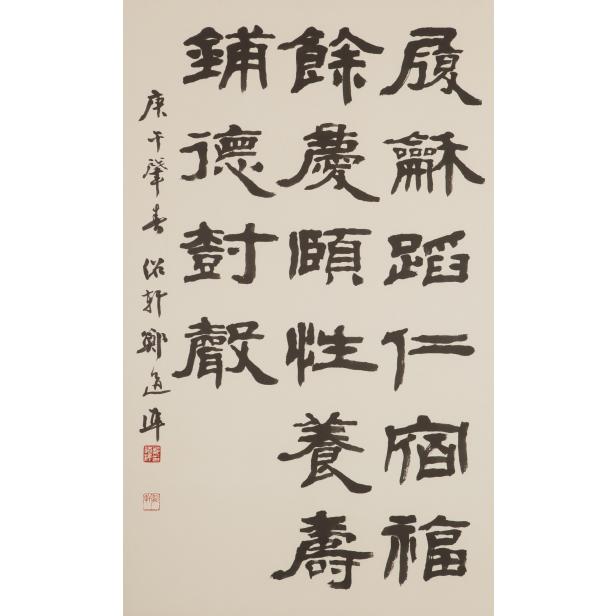 履龢蹈仁宿福
餘慶頤性養壽
鋪德尌聲
庚午肇春 俗軒鄭道準